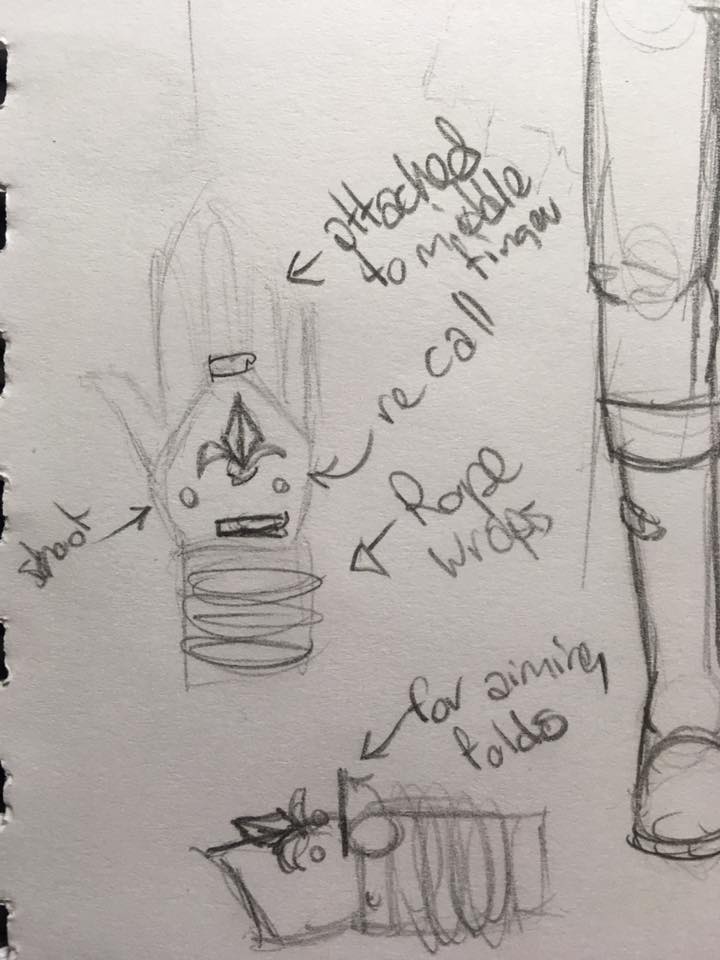 attached
to middle
finger
recall
shoot
Rope
wraps
for aiming
folds